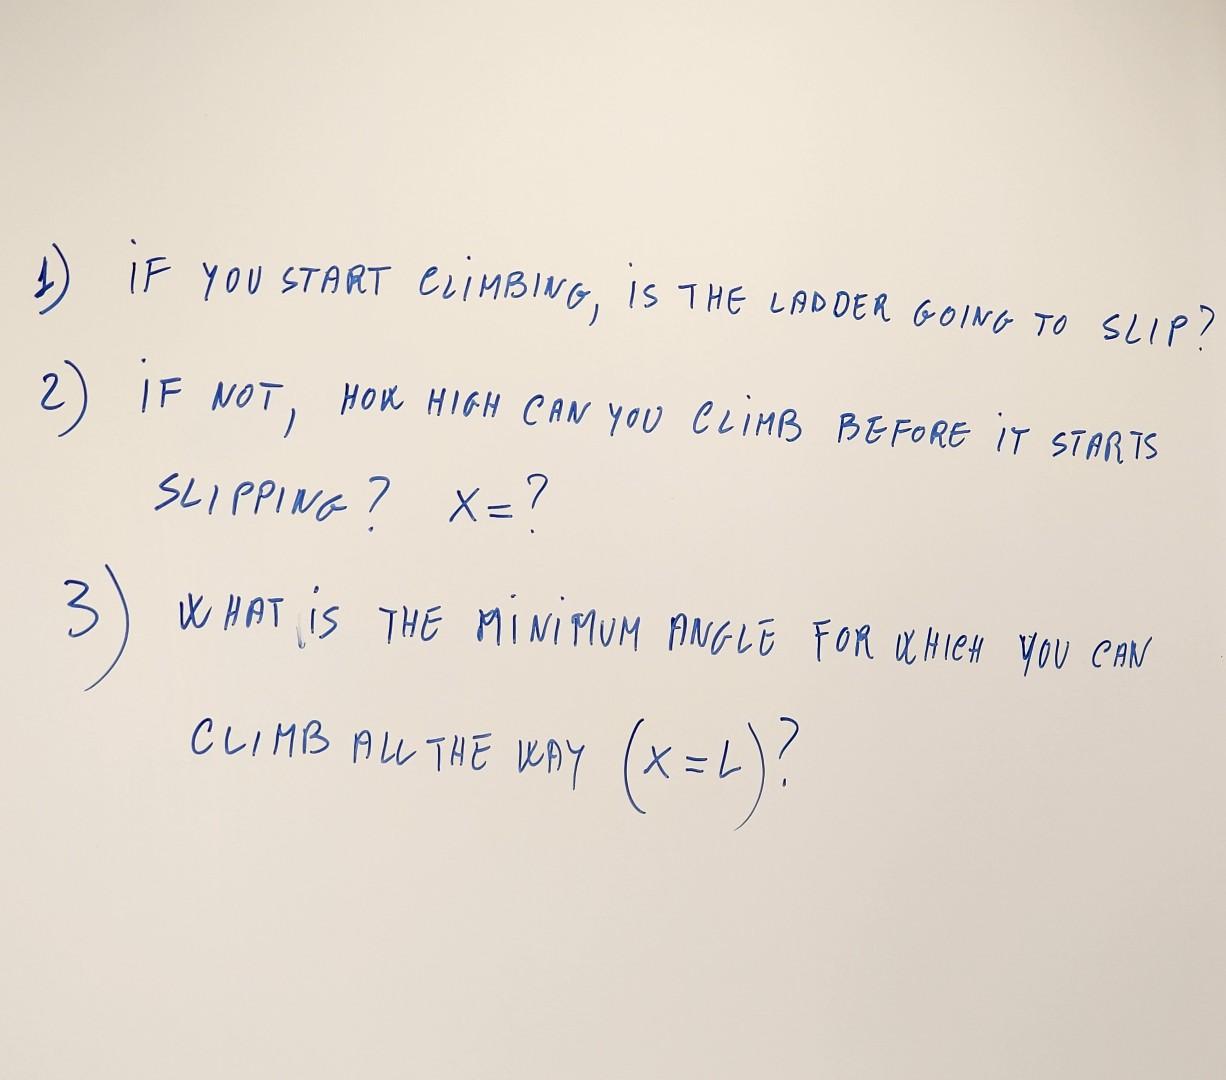 1) IF YOU START CLIMBING, IS THE LADDER GOING TO SLIP?
2) IF NOT, HOW HIGH CAN YOU CLIMB BEFORE IT STARTS
SLIPPING? X=?
3) WHAT IS THE MINIMUM ANGLE FOR WHICH YOU CAN
CLIMB ALL THE WAY (X=L)?